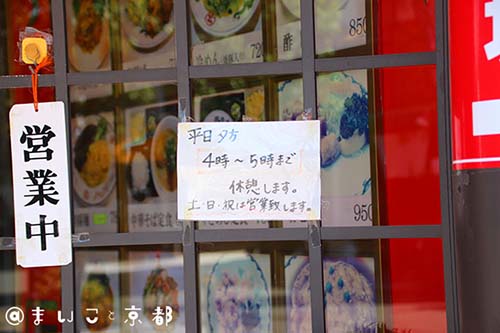 営業中
平日 夕方
4時～5時まで
休憩します。
土・日・祝は営業致します。
850
950
中華そば定食
@まいこと京都